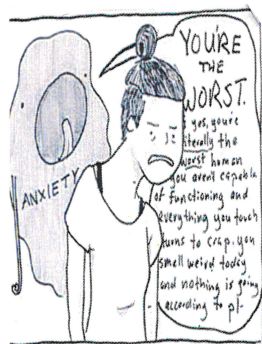 YOU'RE
THE
WORST.
yes, you're
literally the
worst human
you aren't capable
of functioning and
everything you touch
turns to crap. you
smell weird today
and nothing is going
according to pl-
ANXIETY